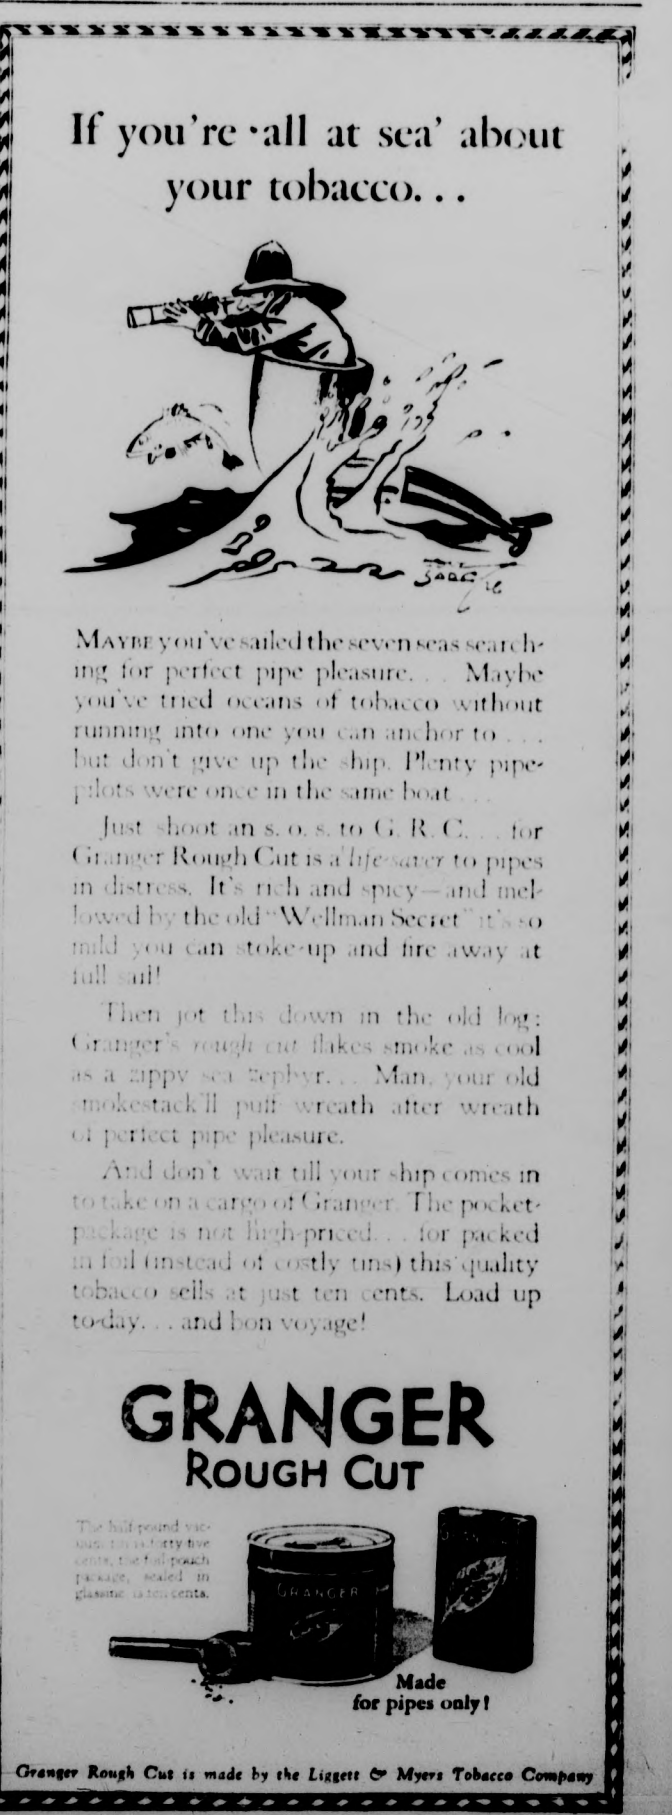 If you're 'all at sea' about
your tobacco. . .
MAYBE you've sailed the seven seas search-
ing for perfect pipe pleasure. . . Maybe
you've tried oceans of tobacco without
running into one you can anchor to . . .
but don't give up the ship. Plenty pipe-
pilots were once in the same boat . . .
Just shoot an s. o. s. to G. R. C. . . for
Granger Rough Cut is a life-saver to pipes
in distress. It's rich and spicy—and mel-
lowed by the old "Wellman Secret" it's so
mild you can stoke-up and fire away at
full sail!
Then jot this down in the old log:
Granger's rough cut flakes smoke as cool
as a zippy sea zephyr. . . Man, your old
smokestack'll puff wreath after wreath
of perfect pipe pleasure.
And don't wait till your ship comes in
to take on a cargo of Granger. The pocket-
package is not high-priced. . . for packed
in foil (instead of costly tins) this quality
tobacco sells at just ten cents. Load up
to-day. . . and bon voyage!
GRANGER
ROUGH CUT
The half-pound vac-
uum tin is forty-five
cents, the foil-pouch
package, sealed in
glassine is ten cents.
GRANGER
GRANGER
Made
for pipes only!
Granger Rough Cut is made by the Liggett & Myers Tobacco Company